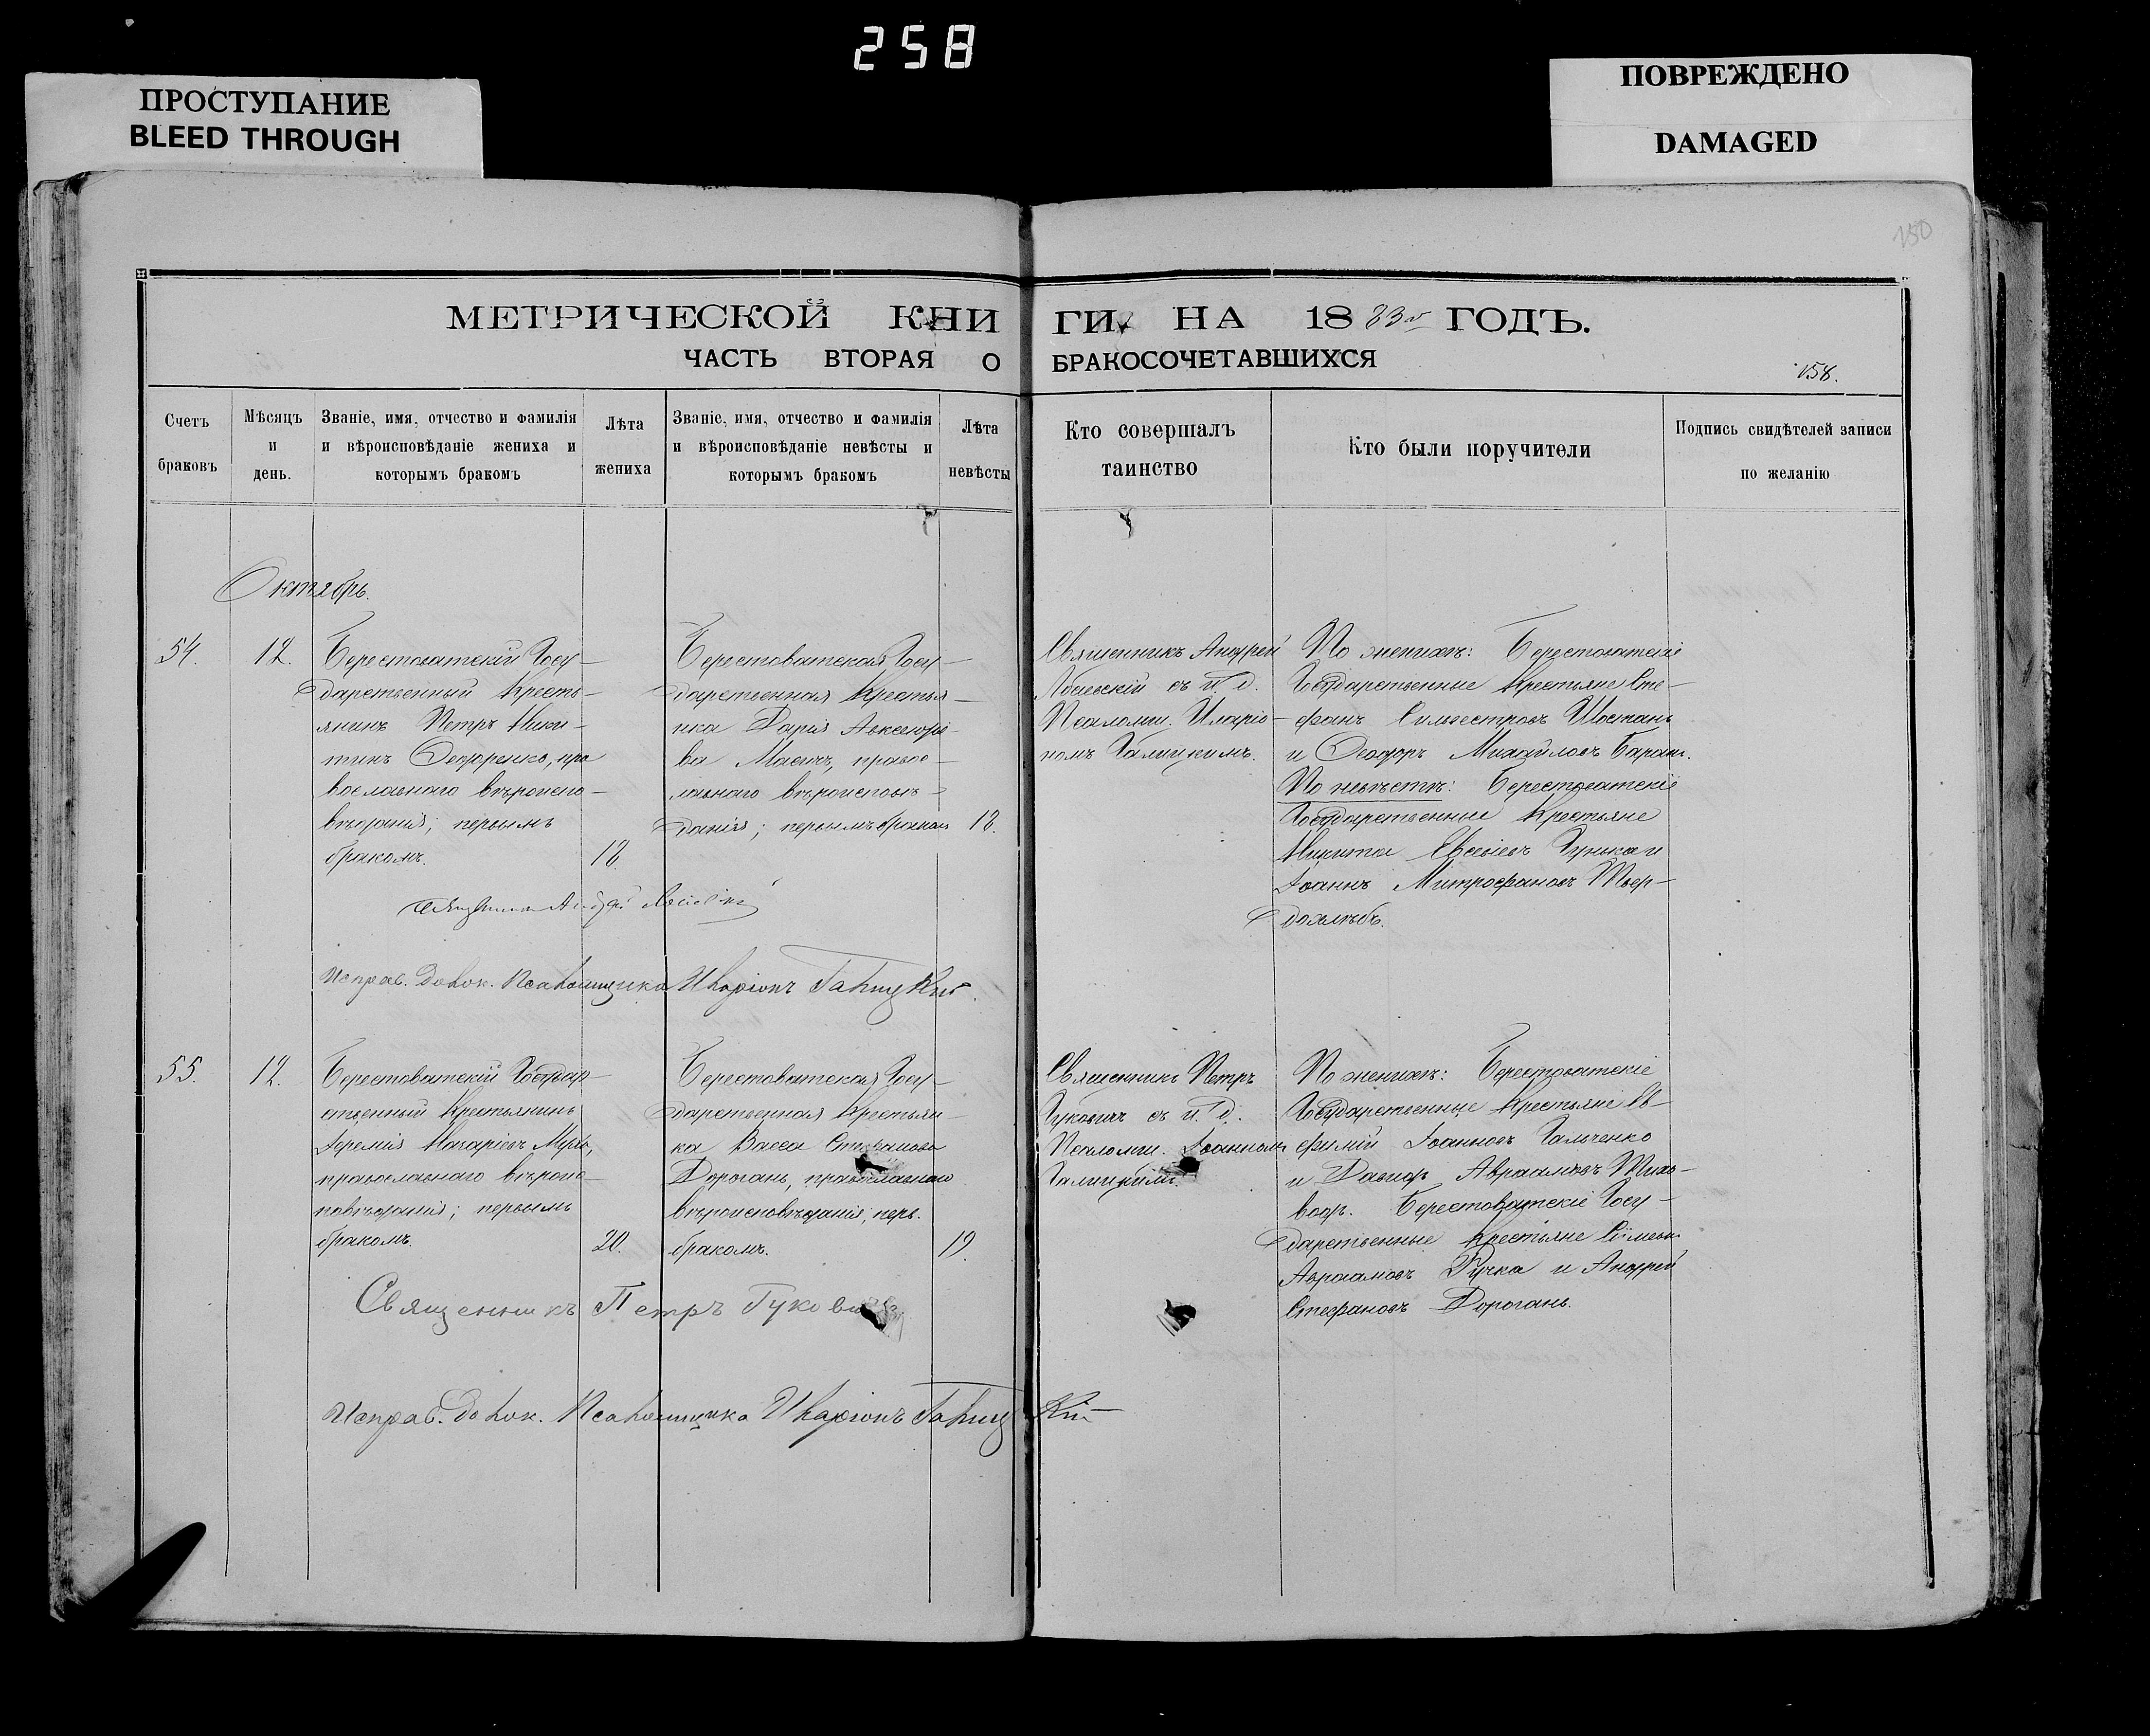 258
ПРОСТУПАНИЕ
BLEED THROUGH
ПОВРЕЖДЕНО
DAMAGED
150
МЕТРИЧЕСКОЙ КНИГИ НА 1883 ГОДЪ.
ЧАСТЬ ВТОРАЯ О БРАКОСОЧЕТАВШИХСЯ
158.
Счетъ
браковъ
Мѣсяцъ
и
день.
Званіе, имя, отчество и фамилія
и вѣроисповѣданіе жениха и
которымъ бракомъ
Лѣта
жениха
Званіе, имя, отчество и фамилія
и вѣроисповѣданіе невѣсты и
которымъ бракомъ
Лѣта
невѣсты
Кто совершалъ
таинство
Кто были поручители
Подпись свидѣтелей записи
по желанію
Октябрь.
54.
12.
Берестоватскій Госу-
дарственный Кресть-
янинъ Петръ Ники-
тинъ пра
вославнаго вѣроиспо-
вѣданія; первымъ
бракомъ.
18.
Берестоватская Госу-
дарственная Крестья-
нка Дарія
ва правос-
лавнаго вѣроисповѣ-
данія; первымъ бракомъ
18.
Священникъ Андрей
съ и. д.
Псаломщ. Иларіо-
номъ Галицкимъ.
По женихѣ: Берестоватскіе
Государственные Крестьяне Сте-
фанъ Сильвестровъ
и Ѳеодоръ Михайловъ Баранъ.
По невѣстѣ: Берестоватскіе
Государственные Крестьяне
Никита Евсевіевъ и
Іоаннъ Митрофановъ Твер-
дохлѣбъ.
Исправ. долж. Псаломщика Иларіонъ Галицкій.
55.
12.
Берестоватскій Государ-
ственный Крестьянинъ
Іеремія Макаріевъ
православнаго вѣроис-
повѣданія; первымъ
бракомъ.
20.
Берестоватская Госу-
дарственная Крестьян-
ка Васса Стефанова
Дорогань, православнаго
вѣроисповѣданія; перв.
бракомъ.
19.
Священникъ Петръ
Гуковичъ съ и. д.
Псаломщ. Іоанномъ
Галицкимъ.
По женихѣ: Берестоватскіе
Государственные Крестьяне Ев-
фимій Іоанновъ Гальченко
и Давидъ Авраамовъ Тихо-
водъ. Берестоватскіе Госу-
дарственные Крестьяне Сѵмеонъ
Авраамовъ и Андрей
Стефановъ Дорогань.
Священникъ Петръ Гуковичъ
Исправ. долж. Псаломщика Иларіонъ Галицкій